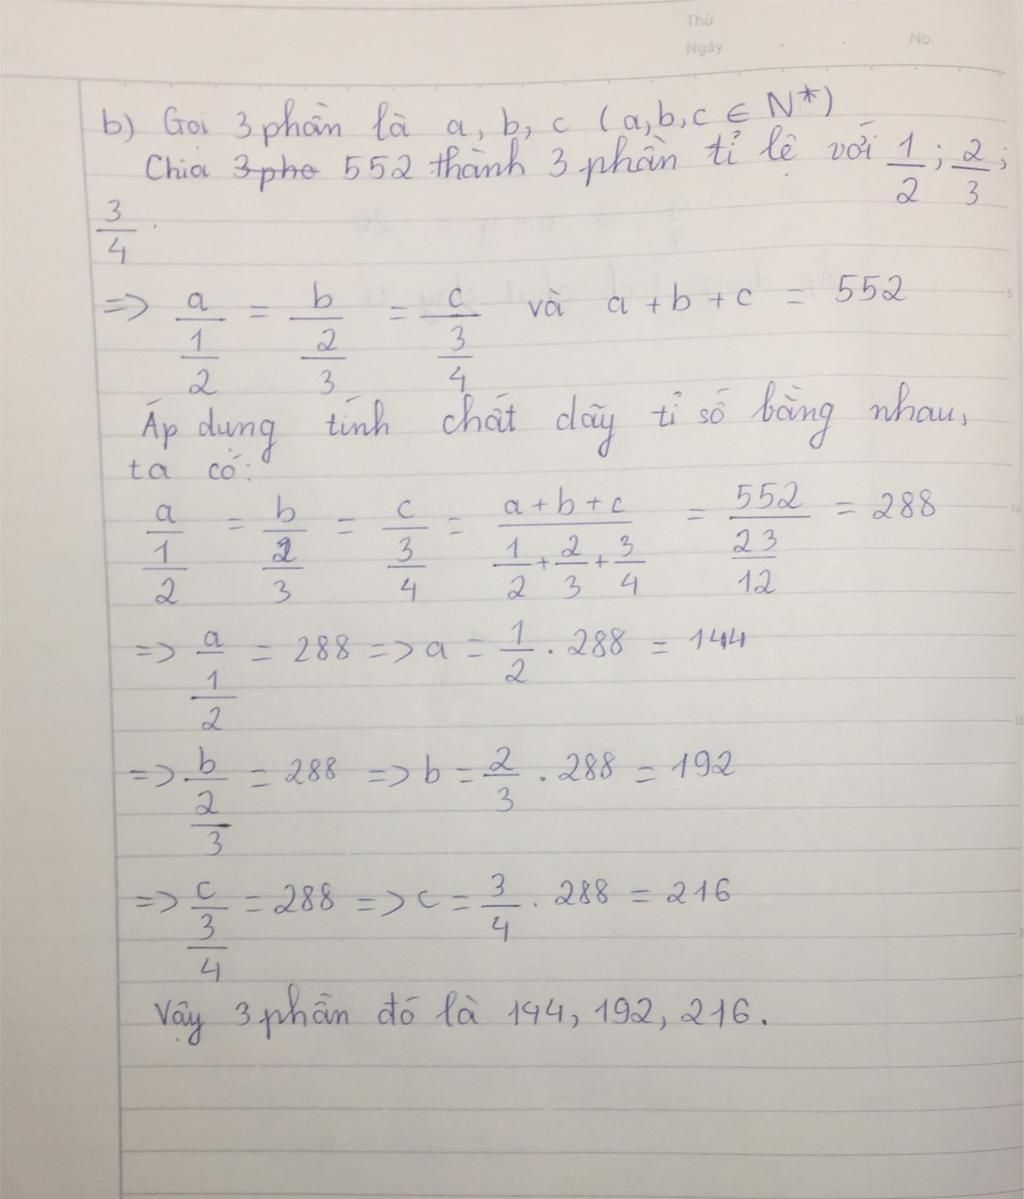 Thứ
Ngày
No.
b) Gọi 3 phần là a, b, c (a,b,c ∈ N*)
Chia 3 pho 552 thành 3 phần tỉ lệ với 1/2; 2/3;
3/4.
=> a/(1/2) = b/(2/3) = c/(3/4) và a + b + c = 552
Áp dụng tính chất dãy tỉ số bằng nhau,
ta có:
a/(1/2) = b/(2/3) = c/(3/4) = (a + b + c)/(1/2 + 2/3 + 3/4) = 552/(23/12) = 288
=> a/(1/2) = 288 => a = 1/2 . 288 = 144
=> b/(2/3) = 288 => b = 2/3 . 288 = 192
=> c/(3/4) = 288 => c = 3/4 . 288 = 216
Vậy 3 phần đó là 144, 192, 216.